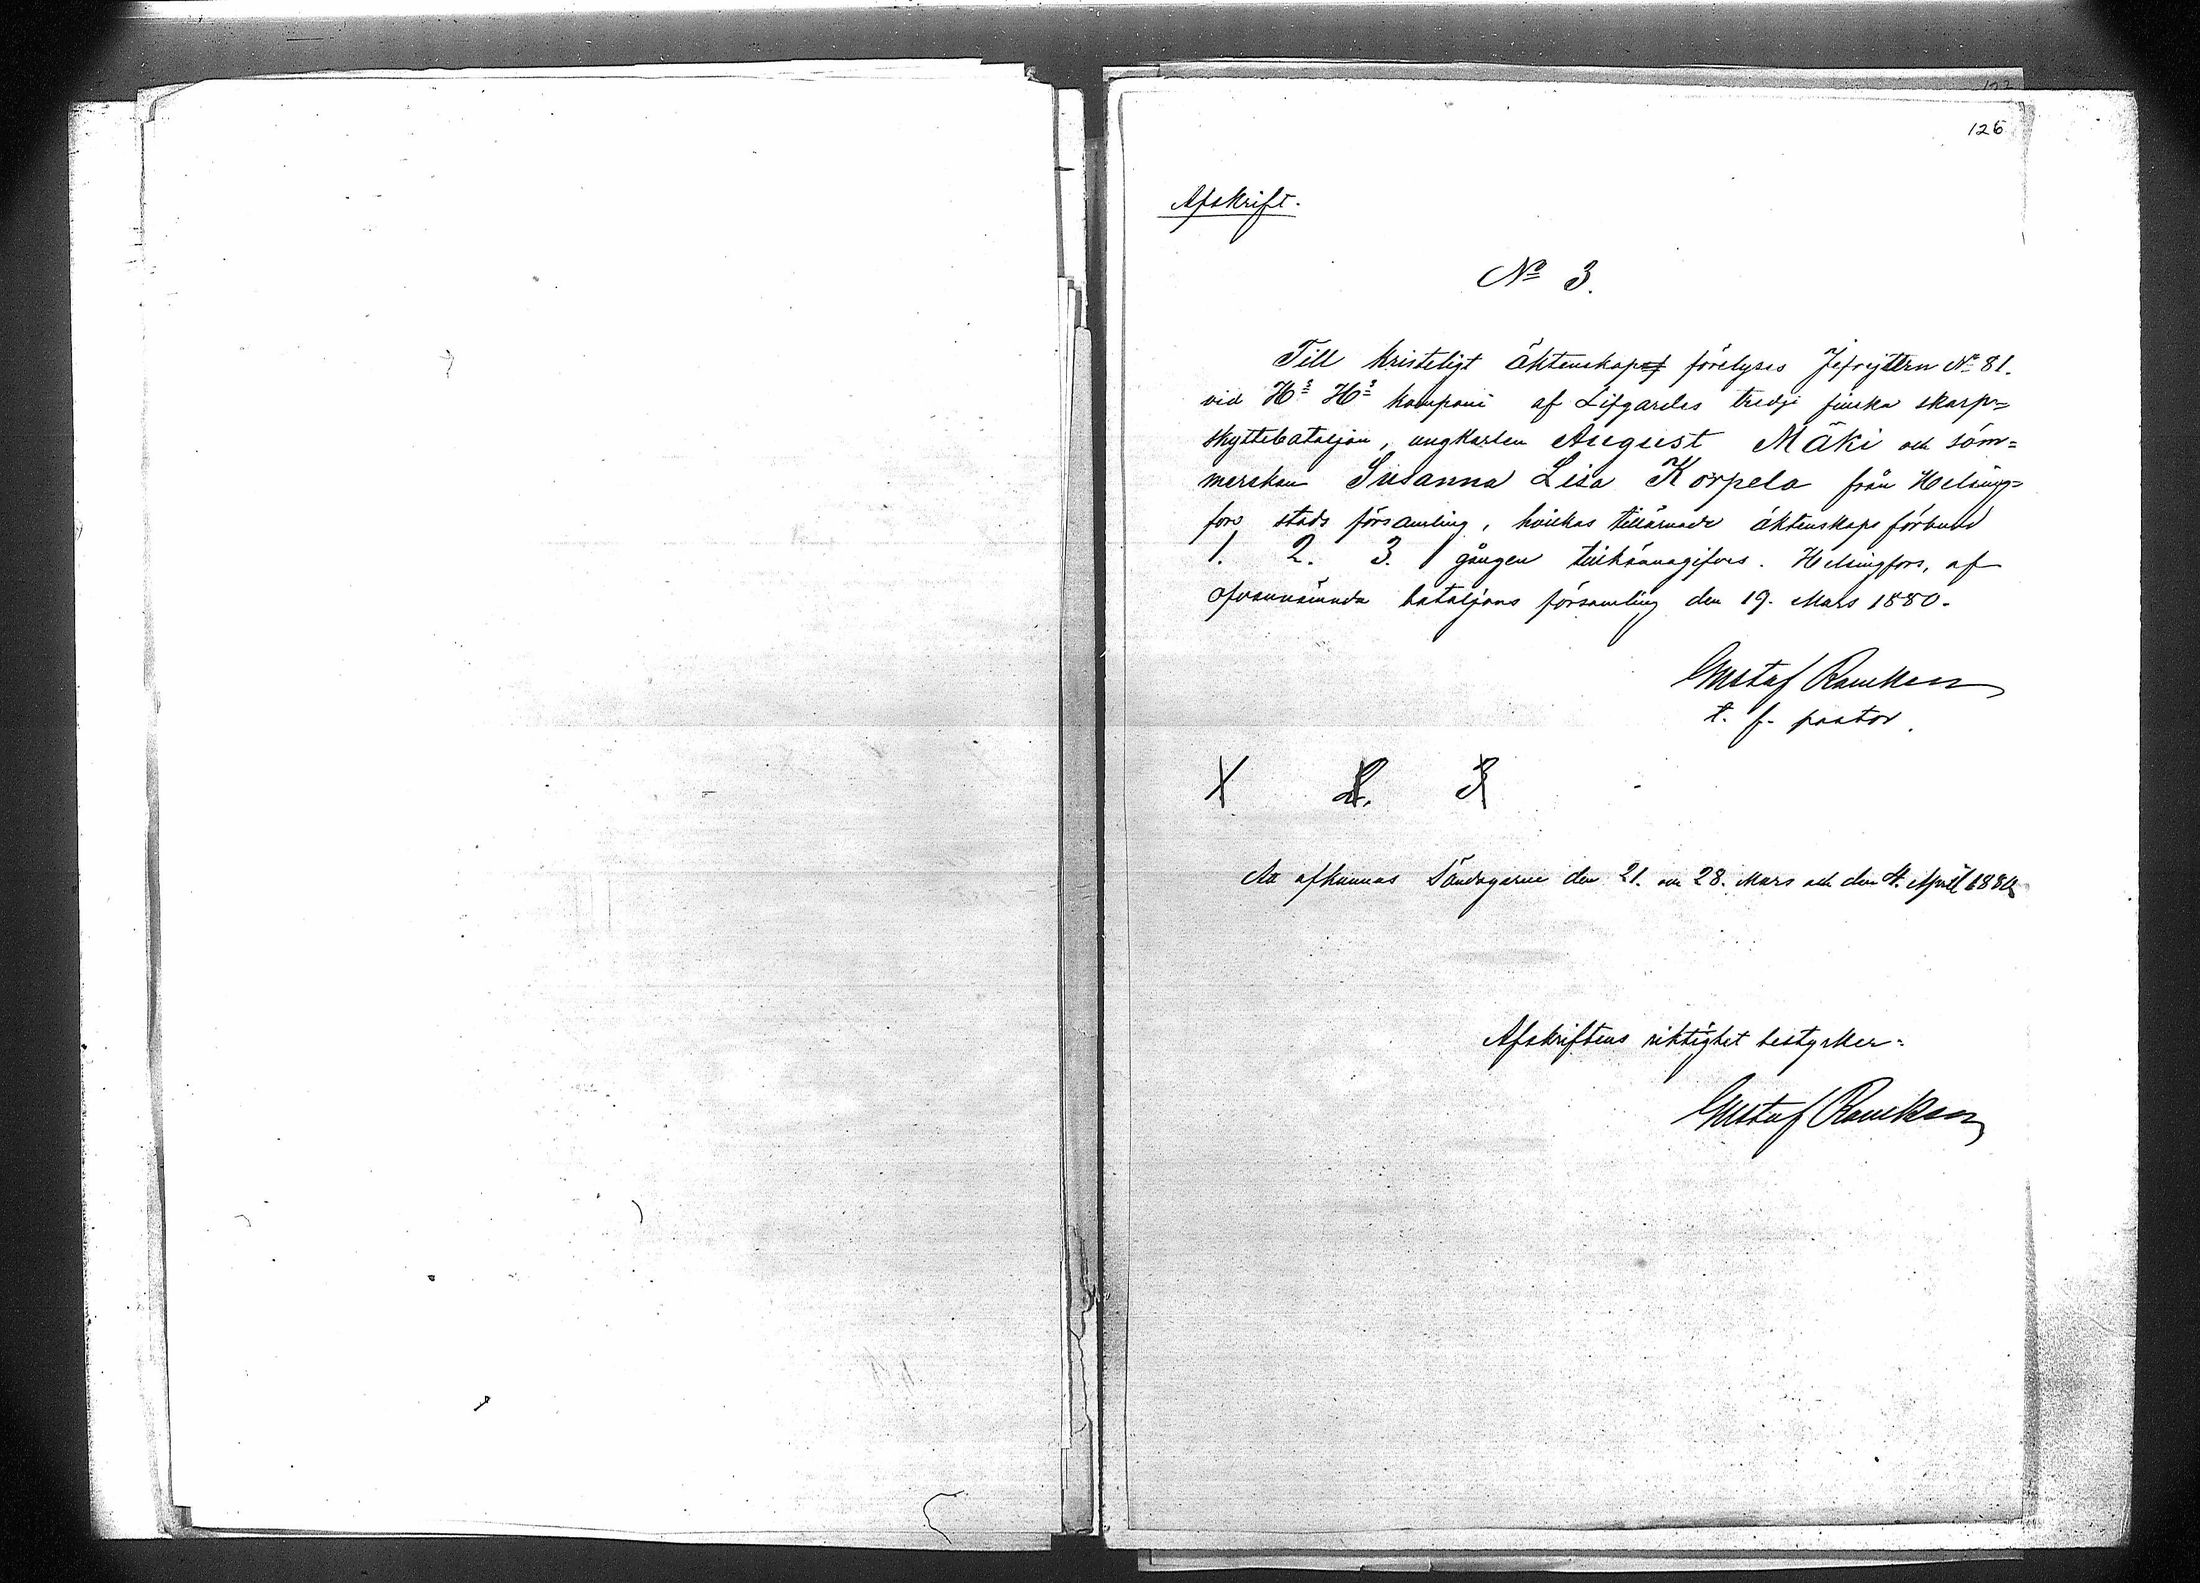 126
Afskrift.
No 3.
Till kristeligt äktenskap förelyses Jefrejtern No 81.
vid Hs Hs kompani af Lifgardes tredje finska skarp=
skyttebataljon, ungkarlen August Mäki och söm=
merskan Susanna Lisa Korpela från Helsing=
fors stads församling, hvilkas tillärnade äktenskaps förbund
1. 2. 3. gången tillkännagifves. Helsingfors, af
ofvannämnda bataljons församling den 19. Mars 1880.
Gustaf Rancken
t. f. pastor.
1 2. 3
Att afkunnas Söndagarne den 21. och 28. Mars och den 4. April 1880
Afskriftens riktighet bestyrker:
Gustaf Rancken